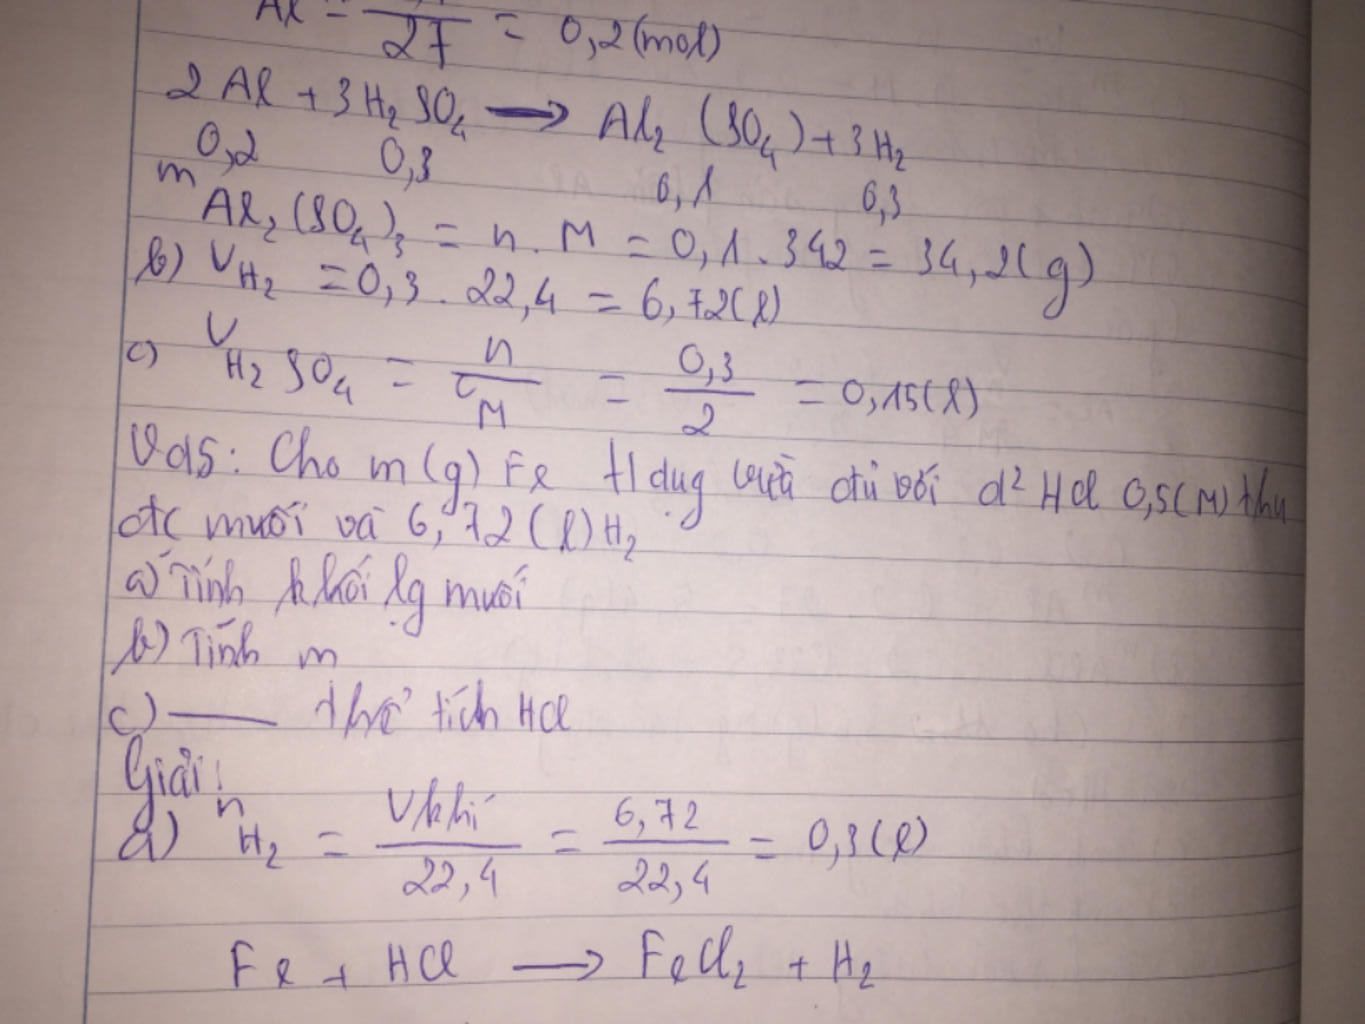 Al = / 27 = 0,2 (mol)
2 Al + 3 H₂SO₄ → Al₂ (SO₄) + 3 H₂
0,2 0,3 0,1 0,3
m Al₂(SO₄)₃ = n . M = 0,1 . 342 = 34,2 (g)
b) V H₂ = 0,3 . 22,4 = 6,72 (l)
c) V H₂SO₄ = n / C M = 0,3 / 2 = 0,15 (l)
Vd5: Cho m (g) Fe t/dụg vừa đủ với d² HCl 0,5 (M) thu
đc muối và 6,72 (l) H₂
a) Tính khối lg muối
b) Tính m
c) —— thể tích HCl
Giải:
a) n H₂ = V khí / 22,4 = 6,72 / 22,4 = 0,3 (l)
Fe + HCl → FeCl₂ + H₂